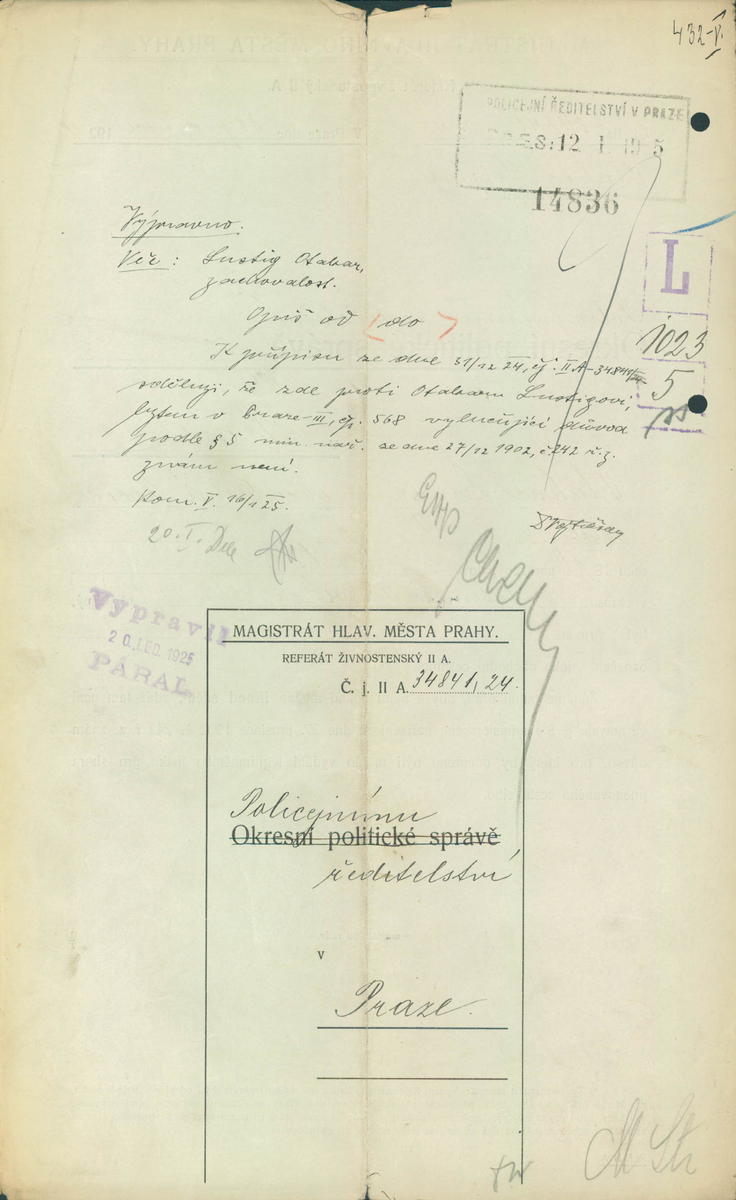 432-V.
POLICEJNÍ ŘEDITELSTVÍ V PRAZE
PRES: 12 I. 19 5
14836
Výpravno.
Věc: Lustig Otakar,
zachovalost.
Opis od do
K přípisu ze dne 31/12 24, čj. II A-34841/24
sděluji, že zde proti Otakaru Lustigovi,
bytem v Praze-III, čp. 568 vylučující důvod
podle § 5 min. nař. ze dne 27/12 1902, č 242 ř.z.
znám není.
Kom. V. 16/1 25.
20. I.
L
1023
5
Vypravil
20. LED. 1925
PARAL
MAGISTRÁT HLAV. MĚSTA PRAHY.
REFERÁT ŽIVNOSTENSKÝ II A.
Č. j. II A. 34841, 24.
Policejnímu
Okresní politické správě
ředitelství
v
Praze.